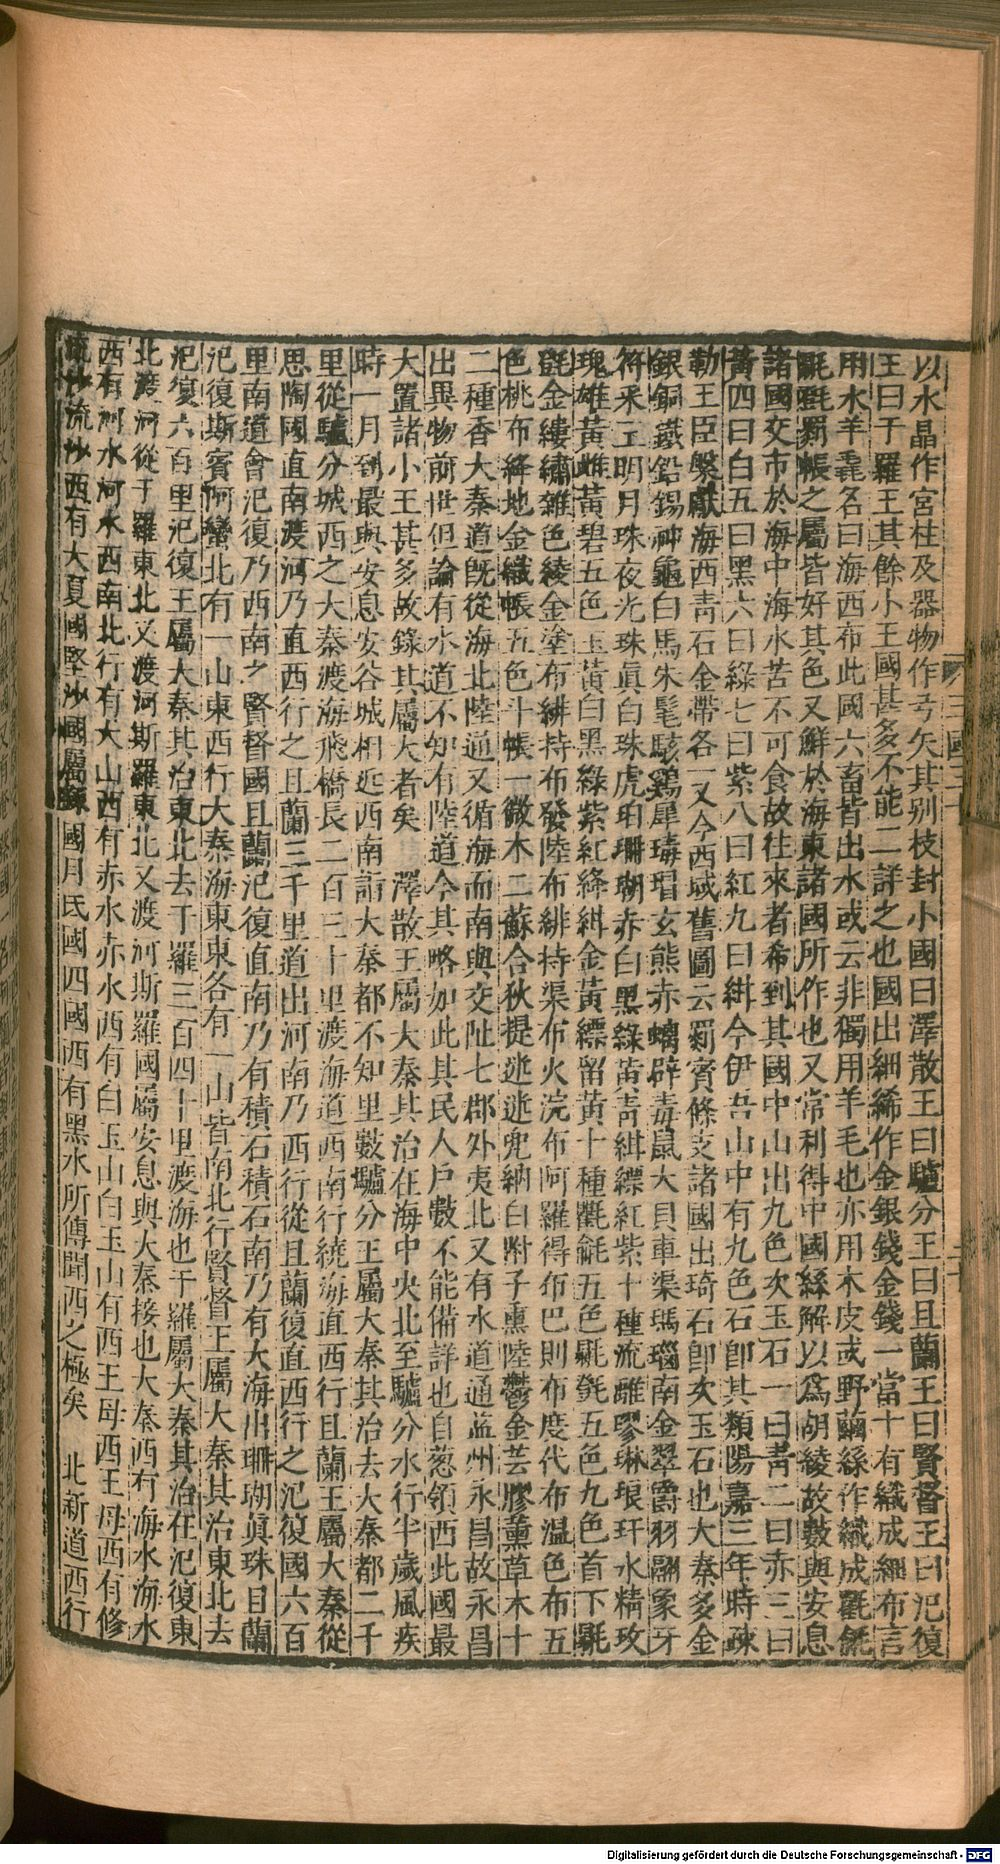 以水晶作宮柱及器物作弓矢其別枝封小國曰澤散王曰驢分王曰且蘭王曰賢督王曰汜復
王曰于羅王其餘小王國甚多不能一一詳之也國出細絺作金銀錢金錢一當十有織成細布言
用水羊毳名曰海西布此國六畜皆出水或云非獨用羊毛也亦用木皮或野繭絲作織成氍毹
毾㲪罽帳之屬皆好其色又鮮於海東諸國所作也又常利得中國絲解以爲胡綾故數與安息
諸國交市於海中海水苦不可食故往來者希到其國中山出九色次玉石一曰靑二曰赤三曰
黃四曰白五曰黑六曰綠七曰紫八曰紅九曰紺今伊吾山中有九色石卽其類陽嘉三年時疎
勒王臣槃獻海西靑石金帶各一又今西域舊圖云罽賓條支諸國出琦石卽次玉石也大秦多金
銀銅鐵鉛錫神龜白馬朱髦駭鷄犀瑇瑁玄熊赤螭辟毒鼠大貝車渠瑪瑙南金翠爵羽翮象牙
符采玉明月珠夜光珠眞白珠虎珀珊瑚赤白黑綠黃靑紺縹紅紫十種流離璆琳琅玕水精玫
瑰雄黃雌黃碧五色玉黃白黑綠紫紅絳紺金黃縹留黃十種氍毹五色毾㲪五色九色首下毾
㲪金縷繡雜色綾金塗布緋持布發陸布緋持渠布火浣布阿羅得布巴則布度代布温色布五
色桃布絳地金織帳五色斗帳一微木二蘇合狄提迷迷兜納白附子熏陸鬱金芸膠薰草木十
二種香大秦道旣從海北陸通又循海而南與交阯七郡外夷北又有水道通益州永昌故永昌
出異物前世但論有水道不知有陸道今其略如此其民人戶數不能備詳也自葱領西此國最
大置諸小王甚多故錄其屬大者矣　澤散王屬大秦其治在海中央北至驢分水行半歲風疾
時一月到最與安息安谷城相近西南詣大秦都不知里數驢分王屬大秦其治去大秦都二千
里從驢分城西之大秦渡海飛橋長二百三十里渡海道西南行繞海直西行且蘭王屬大秦從
思陶國直南渡河乃直西行之且蘭三千里道出河南乃西行從且蘭復直西行之汜復國六百
里南道會汜復乃西南之賢督國且蘭汜復直南乃有積石積石南乃有大海出珊瑚眞珠且蘭
汜復斯賓阿蠻北有一山東西行大秦海東東各有一山皆南北行賢督王屬大秦其治東北去
汜復六百里汜復王屬大秦其治東北去于羅三百四十里渡海也于羅屬大秦其治在汜復東
北渡河從于羅東北又渡河斯羅東北又渡河斯羅國屬安息與大秦接也大秦西有海水海水
西有河水河水西南北行有大山西有赤水赤水西有白玉山白玉山有西王母西王母西有修
流沙流沙西有大夏國堅沙國屬繇國月氏國四國西有黑水所傳聞西之極矣　北新道西行
三國三十
三十
Digitalisierung gefördert durch die Deutsche Forschungsgemeinschaft - DFG